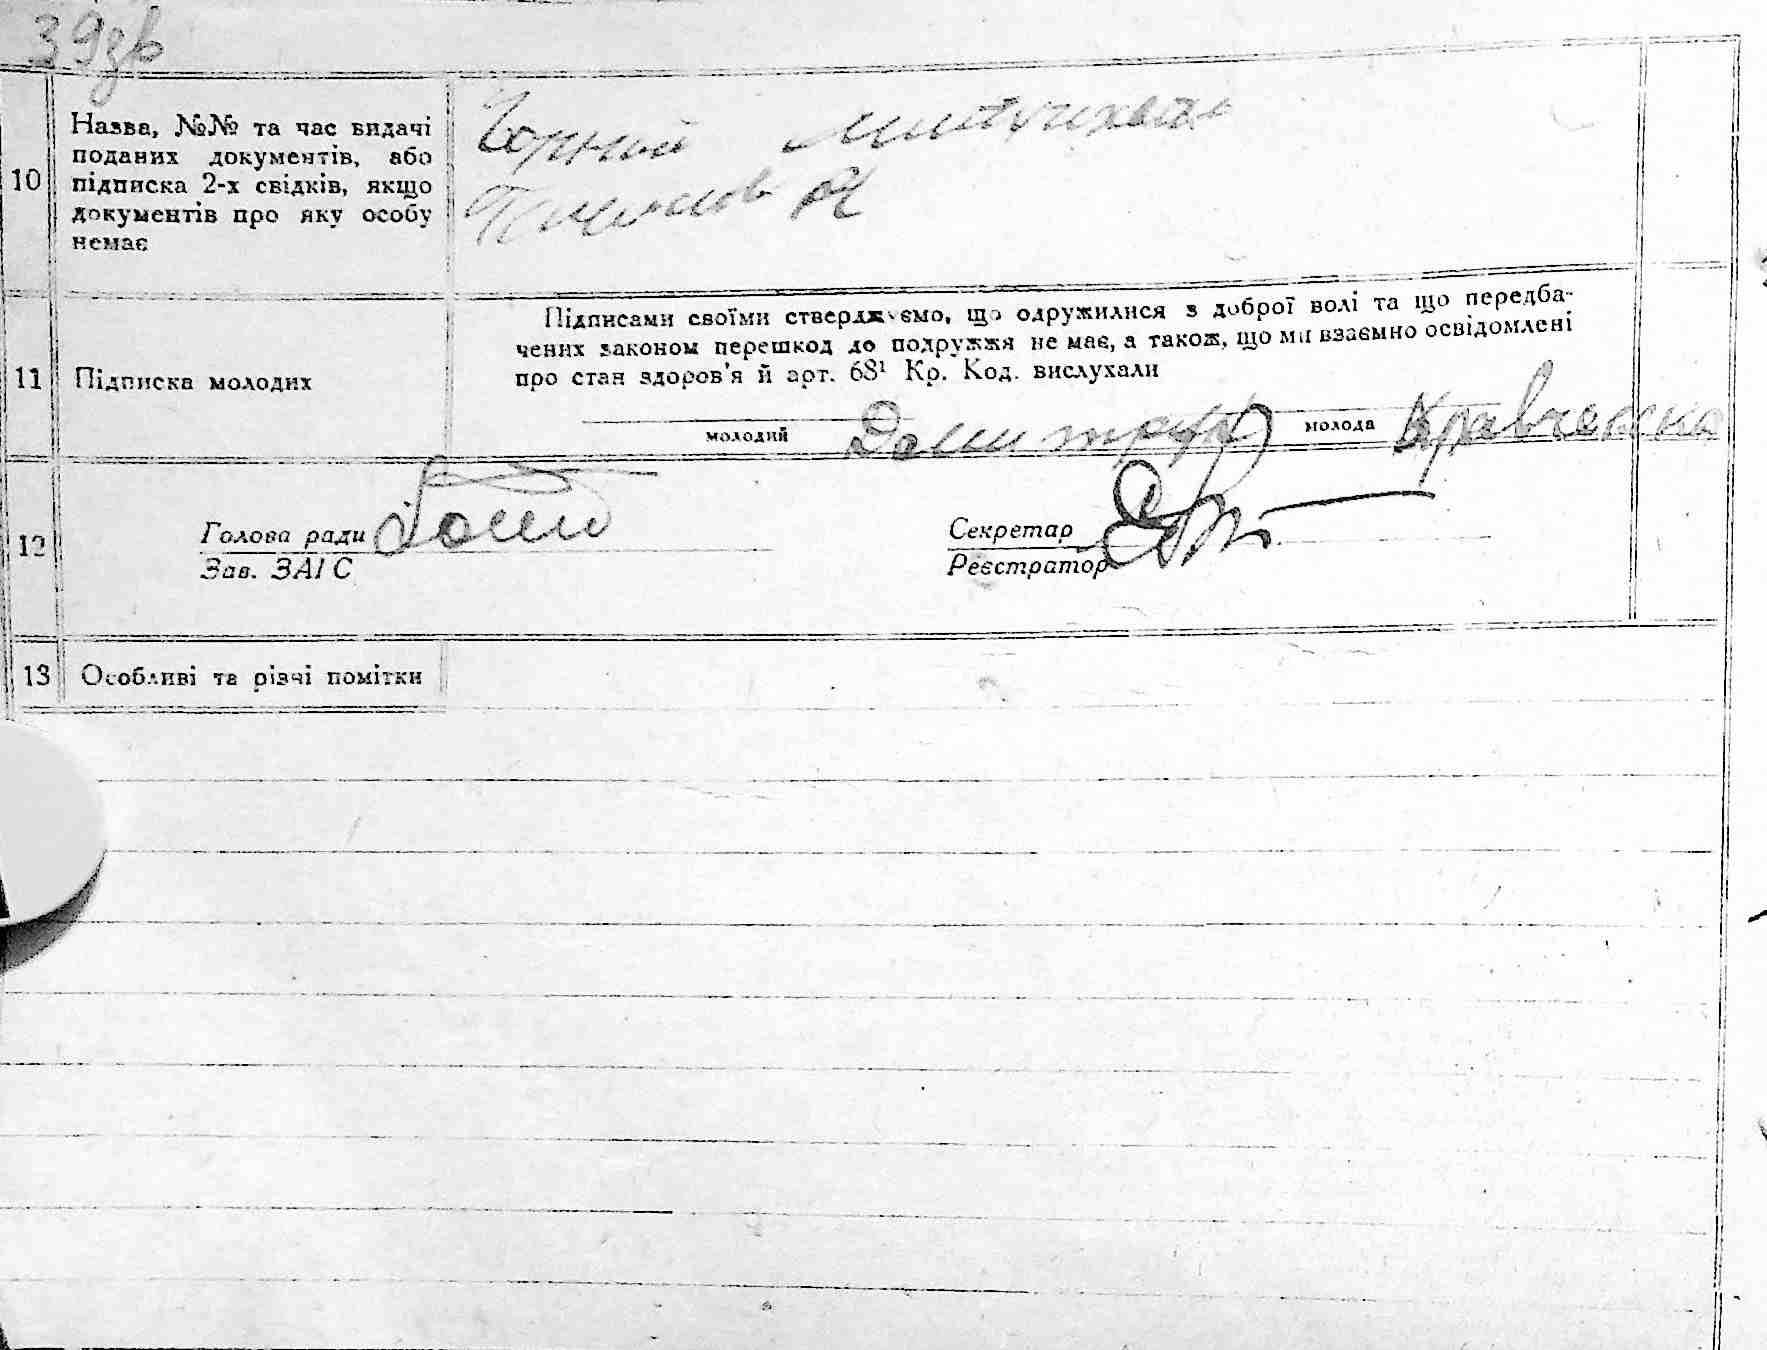 39зв
10
Назва, №№ та час видачі
поданих документів, або
підписка 2-х свідків, якщо
документів про яку особу
немає
Чорний
11
Підписка молодих
Підписами своїми стверджуємо, що одружилися з доброї волі та що передба-
чених законом перешкод до подружжя не має, а також, що ми взаємно освідомлені
про стан здоров'я й арт. 68¹ Кр. Код. вислухали
молодий
молода Кравченко
12
Голова ради
Зав. ЗАГС
Секретар
Реєстратор
13
Особливі та різні помітки